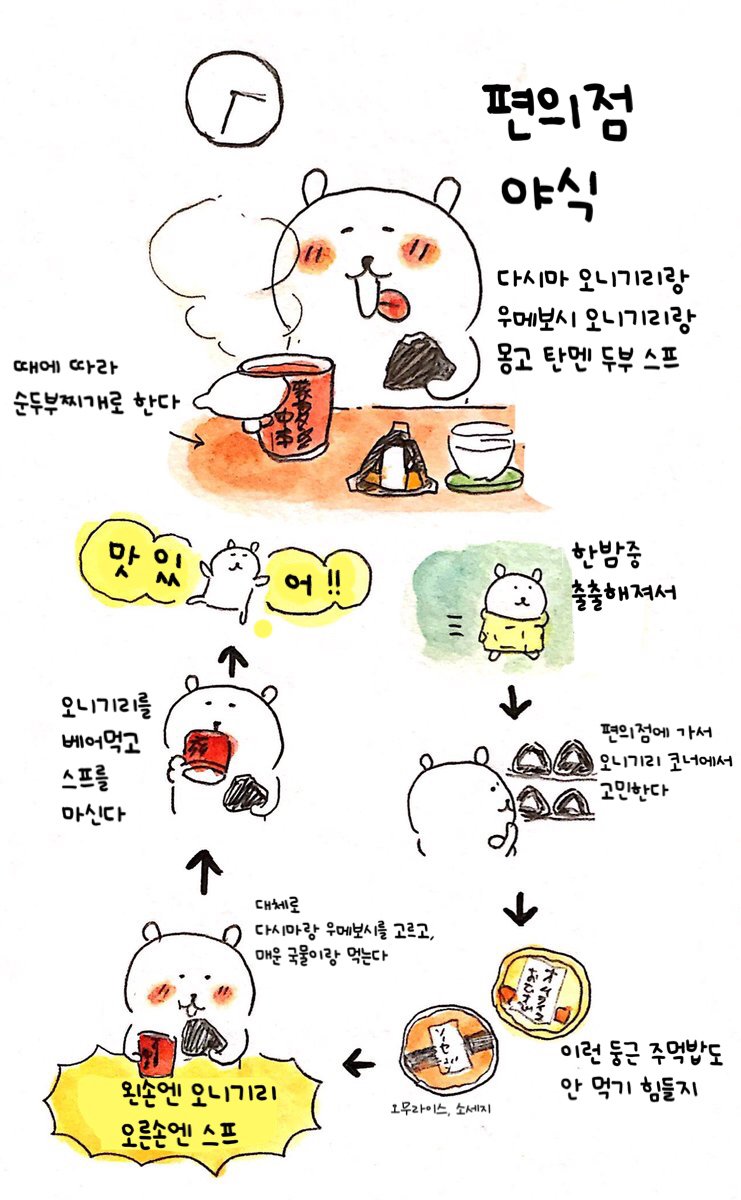 편의점
야식
다시마 오니기리랑
우메보시 오니기리랑
몽고 탄멘 두부 스프
때에 따라
순두부찌개로 한다
한밤중
출출해져서
편의점에 가서
오니기리 코너에서
고민한다
이런 둥근 주먹밥도
안 먹기 힘들지
オムライス
おむすび
ソーセージ
오무라이스, 소세지
대체로
다시마랑 우메보시를 고르고,
매운 국물이랑 먹는다
왼손엔 오니기리
오른손엔 스프
오니기리를
베어먹고
스프를
마신다
맛있어!!